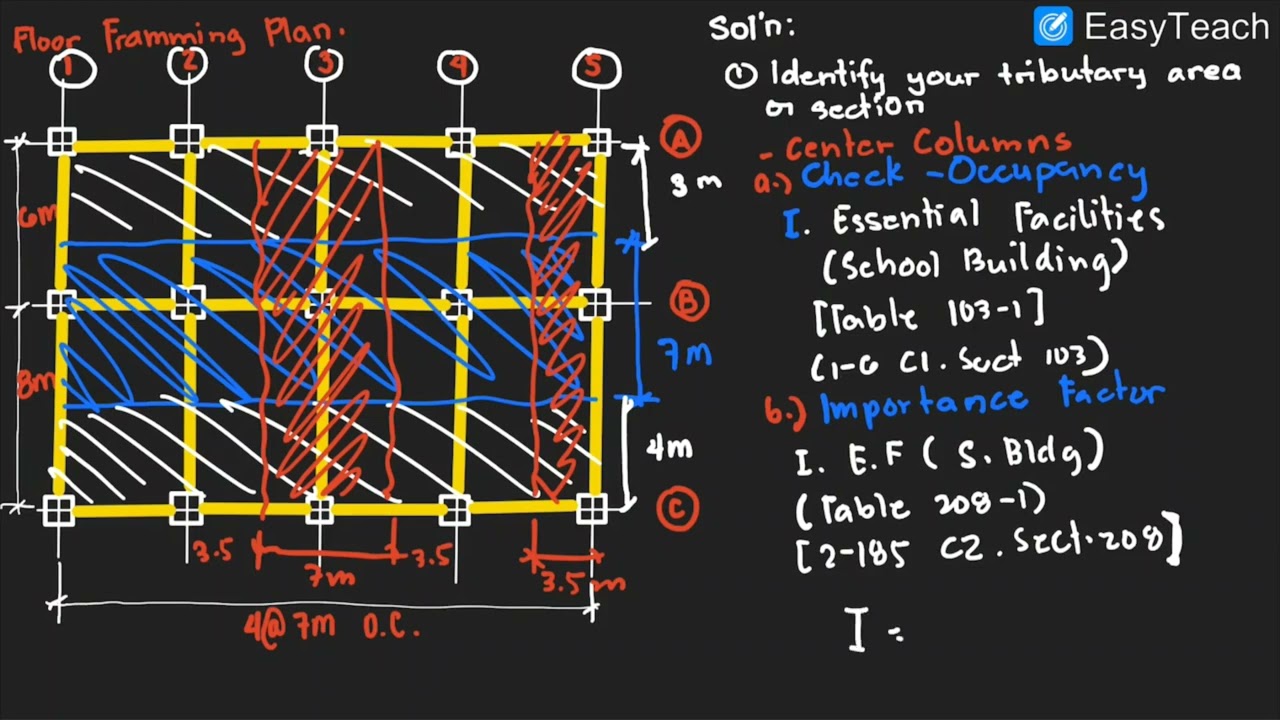 Floor Framming Plan.
1 2 3 4 5
6m
8m
A
B
C
3 m
7 m
4m
3.5
7m
3.5
3.5 m
4@ 7m O.C.
EasyTeach
Sol'n:
① Identify your tributary area
or section
- Center Columns
a.) Check - Occupancy
I. Essential Facilities
(School Building)
[Table 103-1]
(1-6 C1. Sect 103)
b.) Importance Factor
I. E.F ( S. Bldg)
(Table 208-1)
[2-185 C2. Sect. 208]
I =